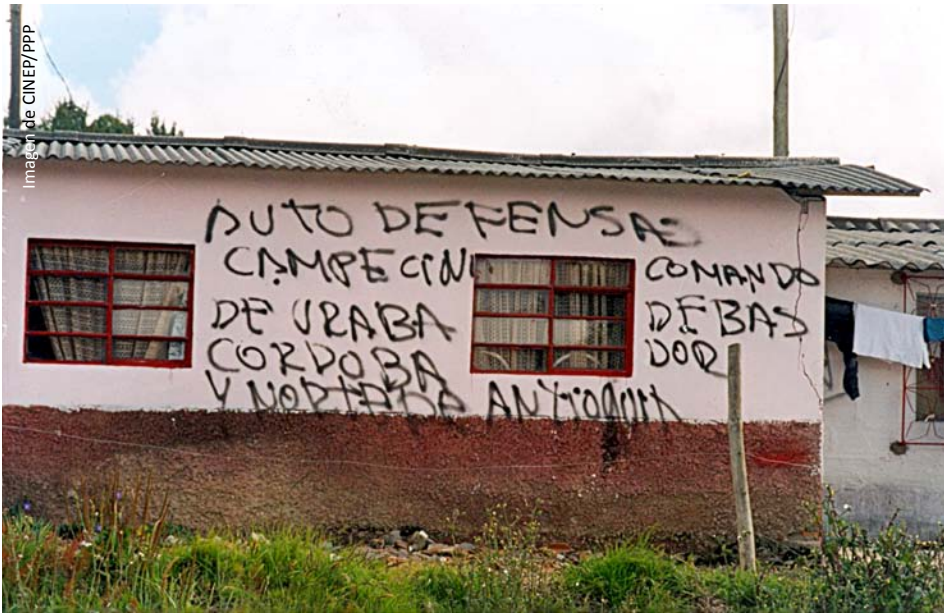 Imagen de CINEP/PPP
AUTO DEFENSAS
CAMPECIN
DE URABA
CORDOBA
Y NORTE DE ANTIOQUIA
COMANDO
DEBAS
DOR